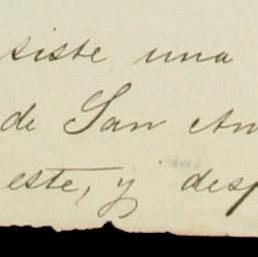 siste una
de San An
este, y desp